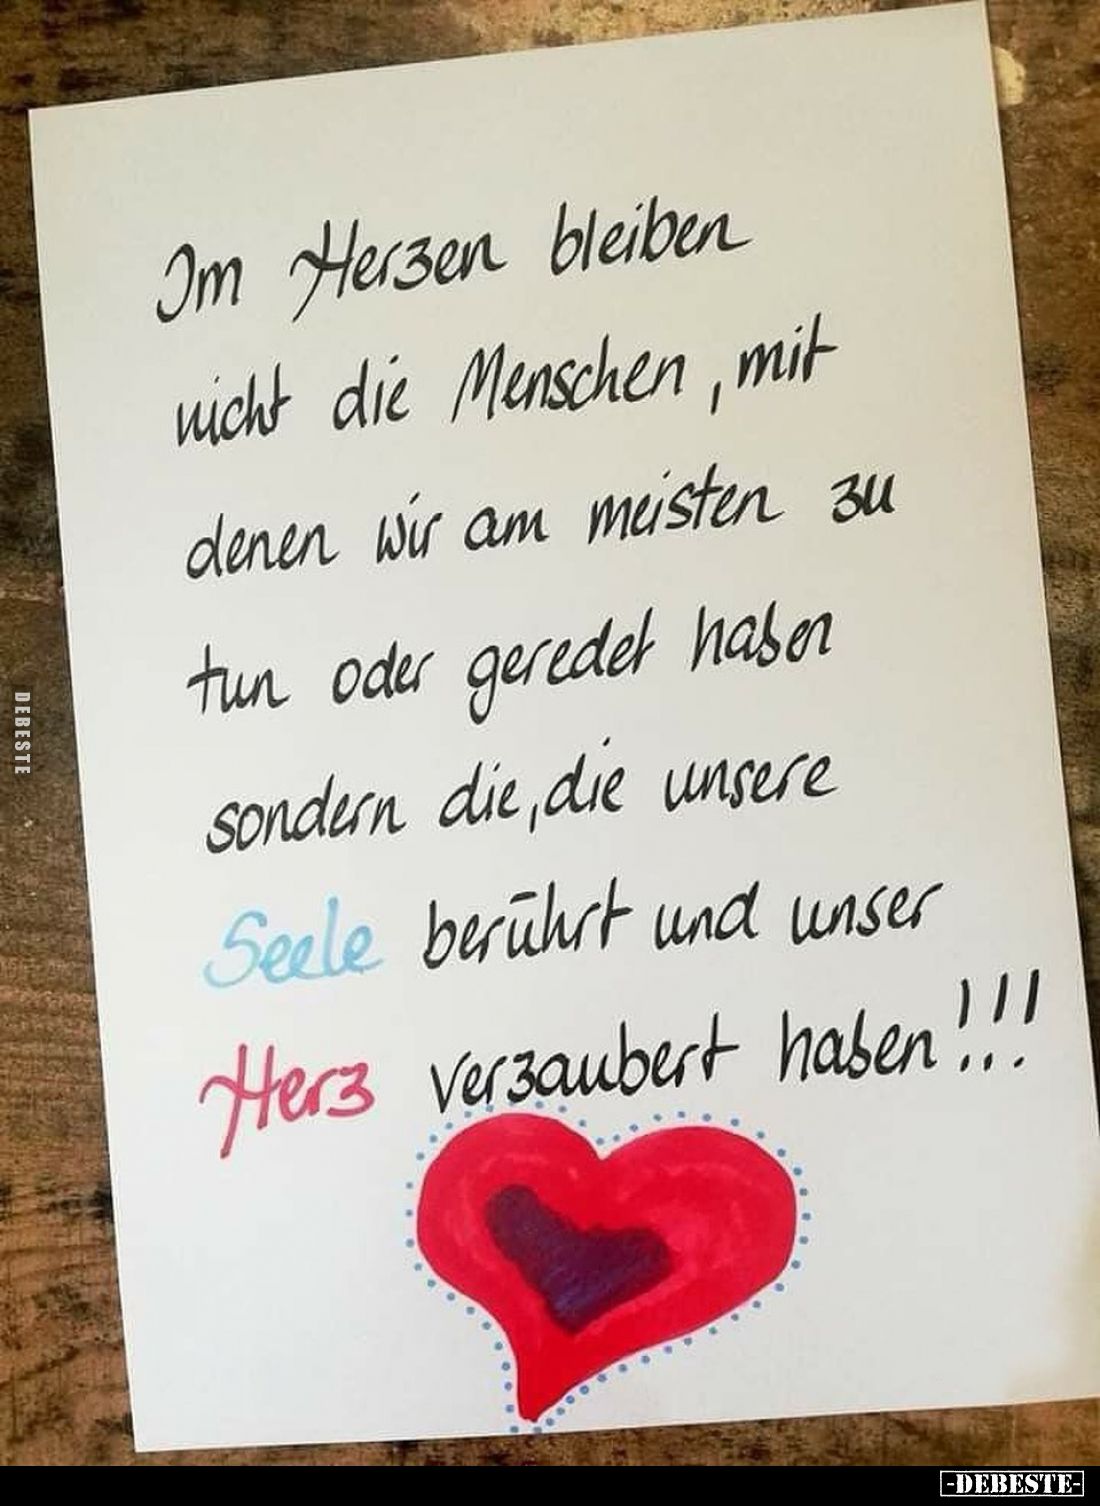 Im Herzen bleiben
nicht die Menschen, mit
denen wir am meisten zu
tun oder geredet haben
sondern die, die unsere
Seele berührt und unser
Herz verzaubert haben!!!
DEBESTE
-DEBESTE-